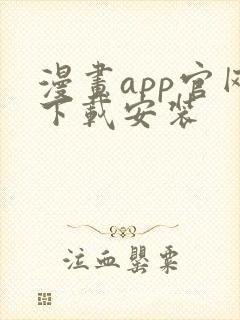 漫畫app官网
下載安裝
注血罌粟